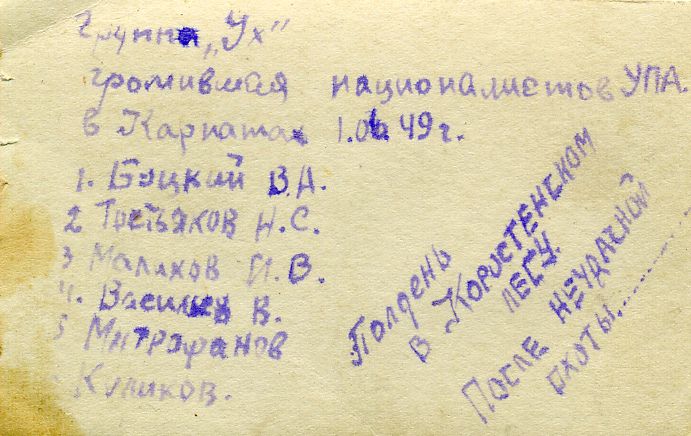 Группа „Ух"
громившая националистов УПА.
в Карпатах 1.06 49г.
1. Боцкий В.А.
2 Третьяков Н.С.
3 Малихов И.В.
4. Васильев В.
5 Митрофанов
Куликов.
Полдень
в Коростенском
лесу.
После неудачной
охоты.........